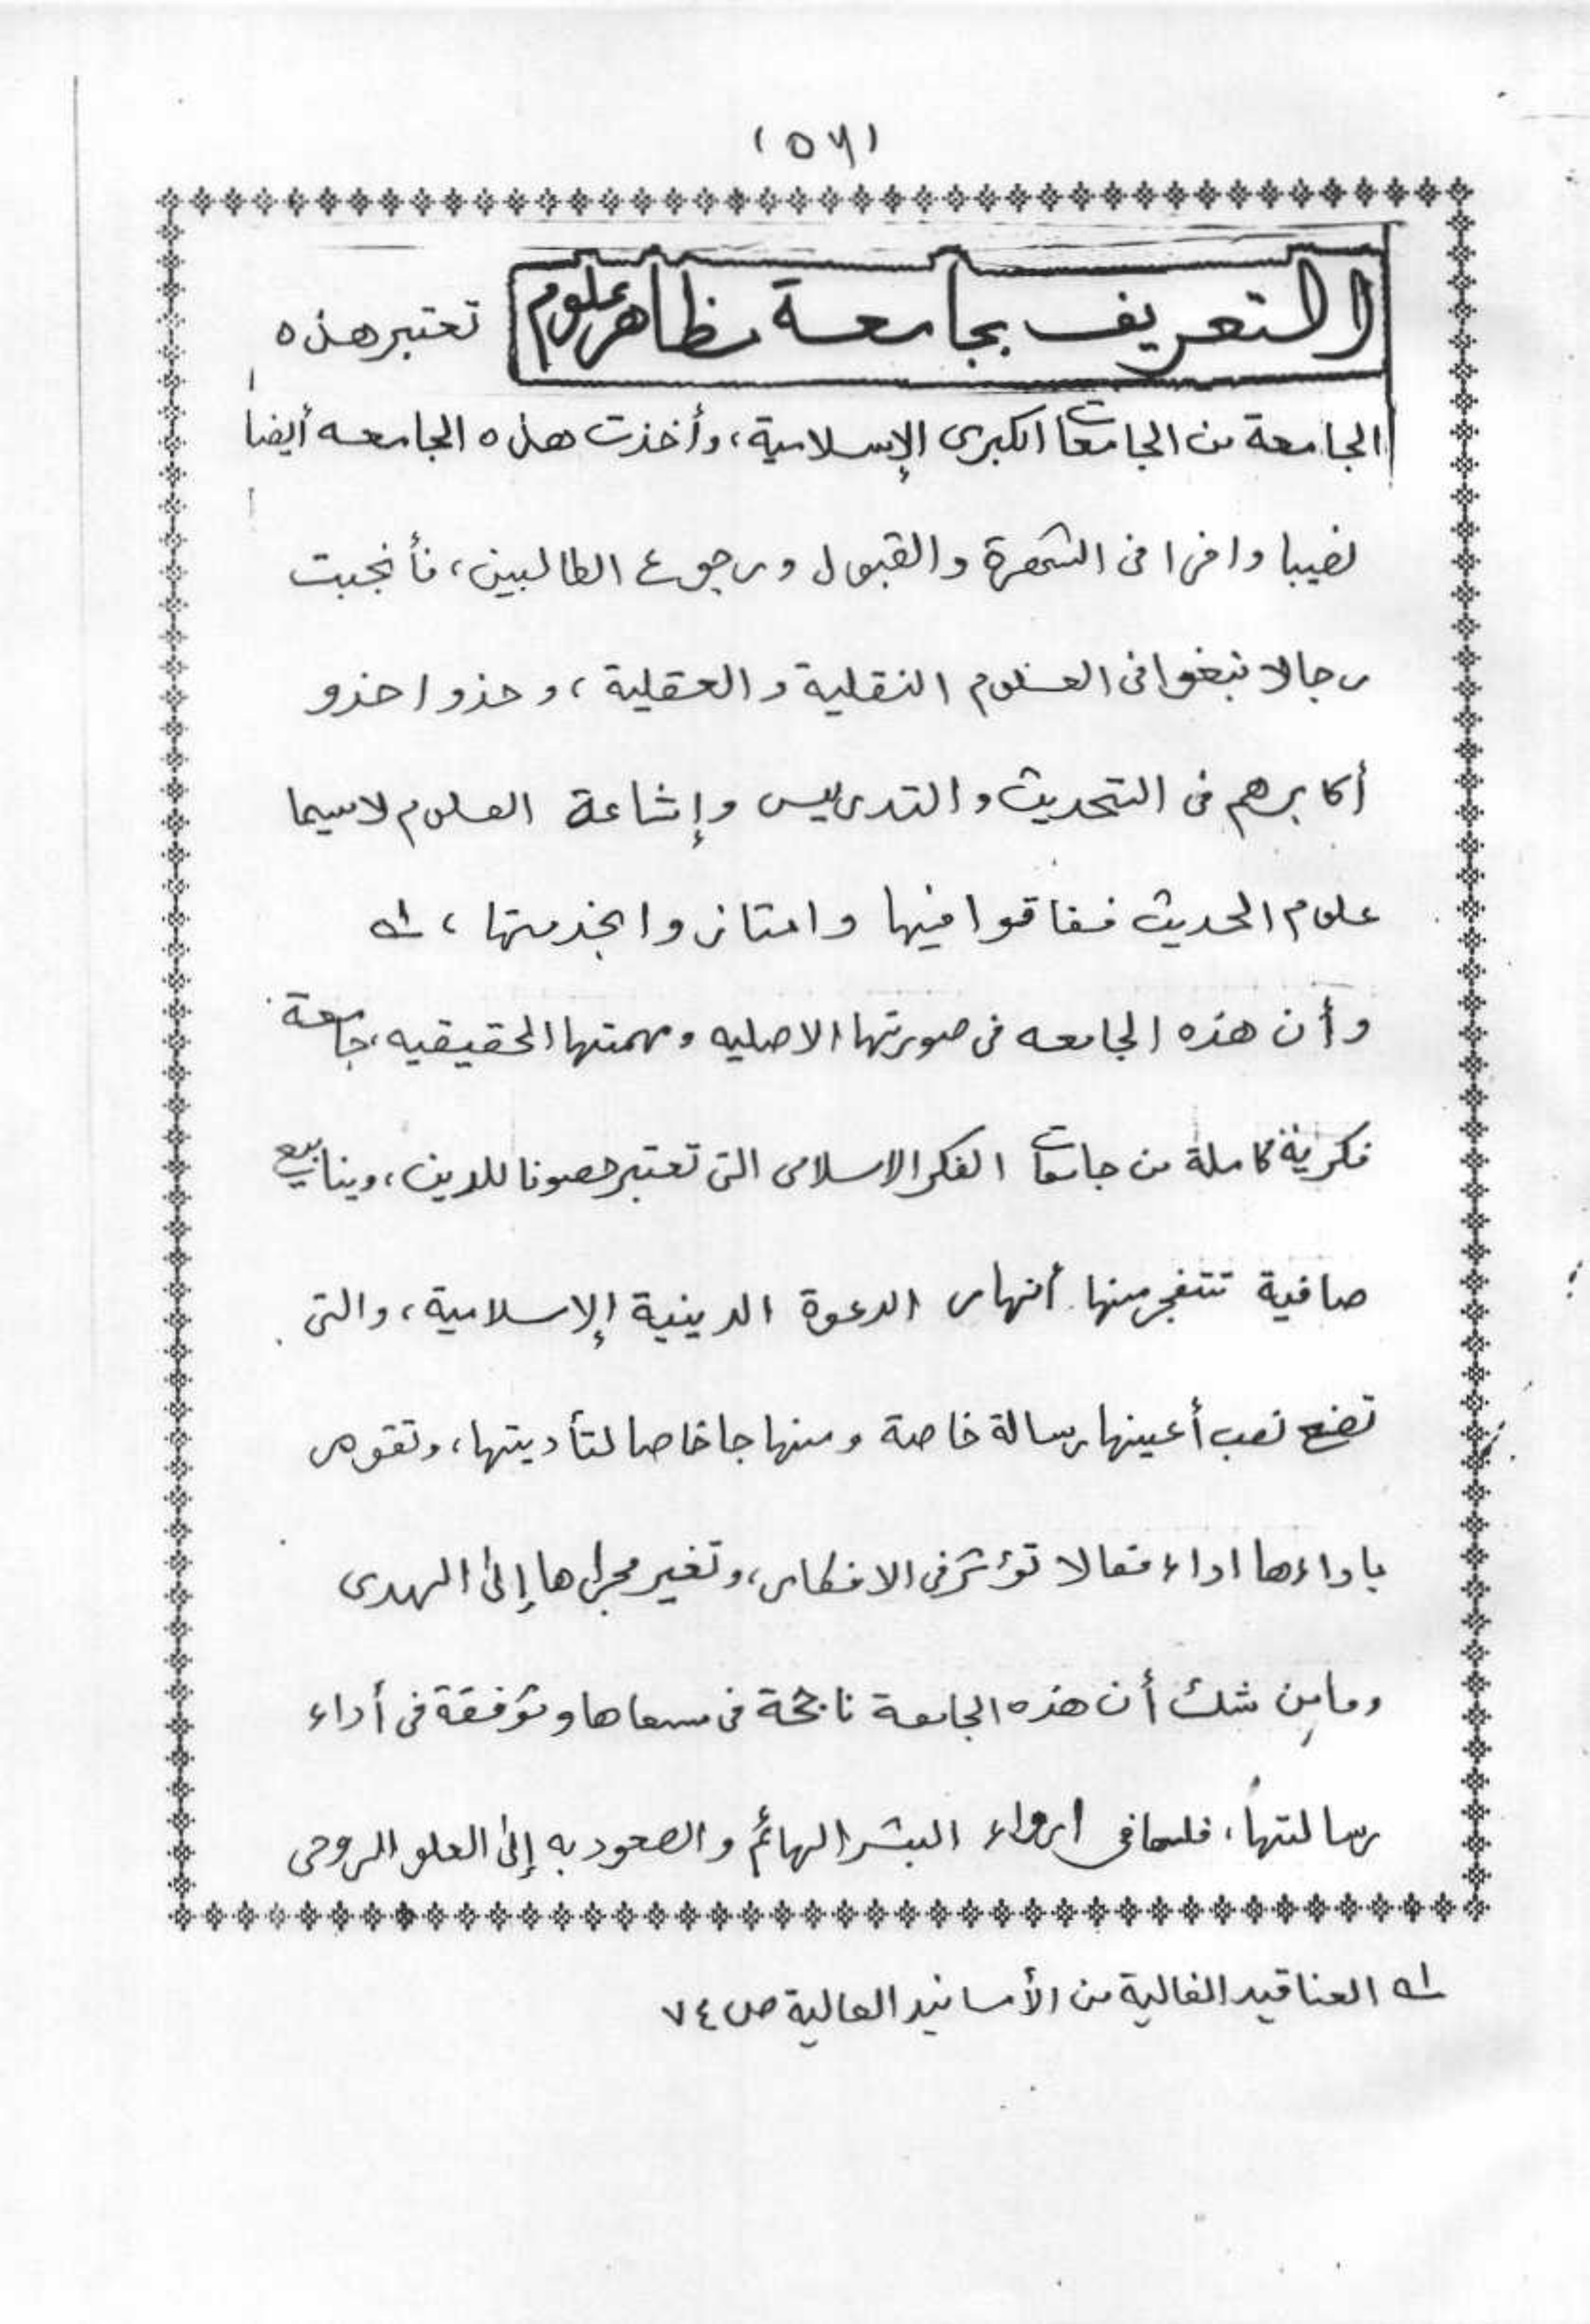 (٥٦)
التعريف بجامعة مظاهر علوم تعتبر هذه
الجامعة من الجامعات الكبرى الإسلامية، وأخذت هذه الجامعه أيضا
نصيبا وافرا فى الشهرة والقبول ورجوع الطالبين، فأنجبت
رجالا نبغوا فى العلوم النقلية والعقلية، وحذوا حذو
أكابرهم فى التحديث والتدريس وإشاعة العلوم لاسيما
علوم الحديث ففاقوا فيها وامتازوا بخدمتها، له
وأن هذه الجامعه فى صورتها الاصليه ومهمتها الحقيقيه، جامعة
فكرية كاملة من جامعات الفكر الاسلامى التى تعتبر حصونا للدين، وينابيع
صافية تتفجر منها أنهار الدعوة الدينية الإسلامية، والتى
تضع نصب أعينها رسالة خاصة ومنهاجا خاصا لتأديتها، وتقوم
باداءها اداء فعالا تؤثر فى الافكار، وتغير مجراها إلى الهدى
وما من شك أن هذه الجامعة ناجحة فى مسعاها وموفقة فى أداء
رسالتها، فلها فى ارواء البشر الهائم والصعود به إلى العلو الروحى
له العناقيد الغالية من الأسانيد العالية ص ٧٤